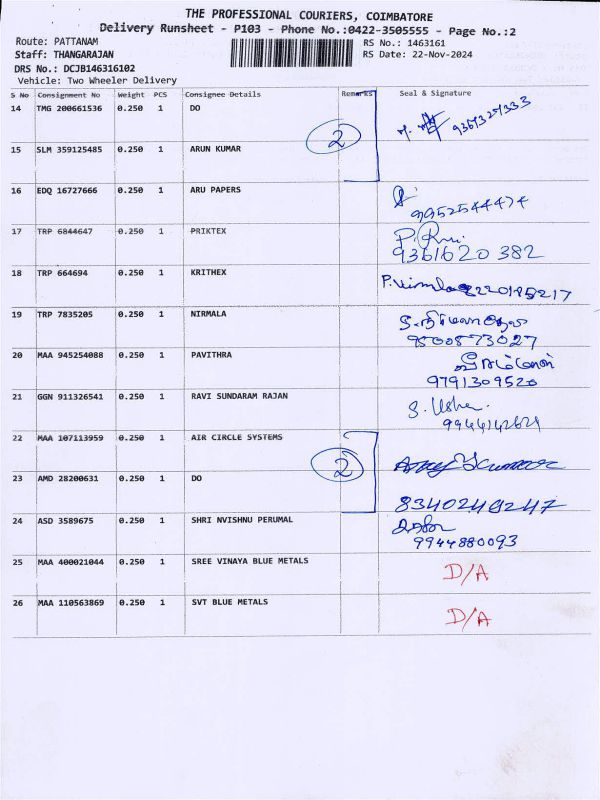 THE PROFESSIONAL COURIERS, COIMBATORE
Delivery Runsheet - P103 - Phone No.:0422-3505555 - Page No.:2
Route: PATTANAM
RS No.: 1463161
Staff: THANGARAJAN
RS Date: 22-Nov-2024
DRS No.: DCJB146316102
Vehicle: Two Wheeler Delivery
S No Consignment No Weight PCS Consignee Details Remarks Seal & Signature
14 TMG 200661536 0.250 1 DO
2
15 SLM 359125485 0.250 1 ARUN KUMAR
16 EDQ 16727666 0.250 1 ARU PAPERS
9952544474
17 TRP 6844647 0.250 1 PRIKTEX
9361620382
18 TRP 664694 0.250 1 KRITHEX
19 TRP 7835205 0.250 1 NIRMALA
9500873027
20 MAA 945254088 0.250 1 PAVITHRA
9791309520
21 GGN 911326541 0.250 1 RAVI SUNDARAM RAJAN
S. Usha
22 MAA 107113959 0.250 1 AIR CIRCLE SYSTEMS
2
23 AMD 28200631 0.250 1 DO
8340249247
24 ASD 3589675 0.250 1 SHRI NVISHNU PERUMAL
9944880093
25 MAA 400021044 0.250 1 SREE VINAYA BLUE METALS D/A
26 MAA 110563869 0.250 1 SVT BLUE METALS D/A